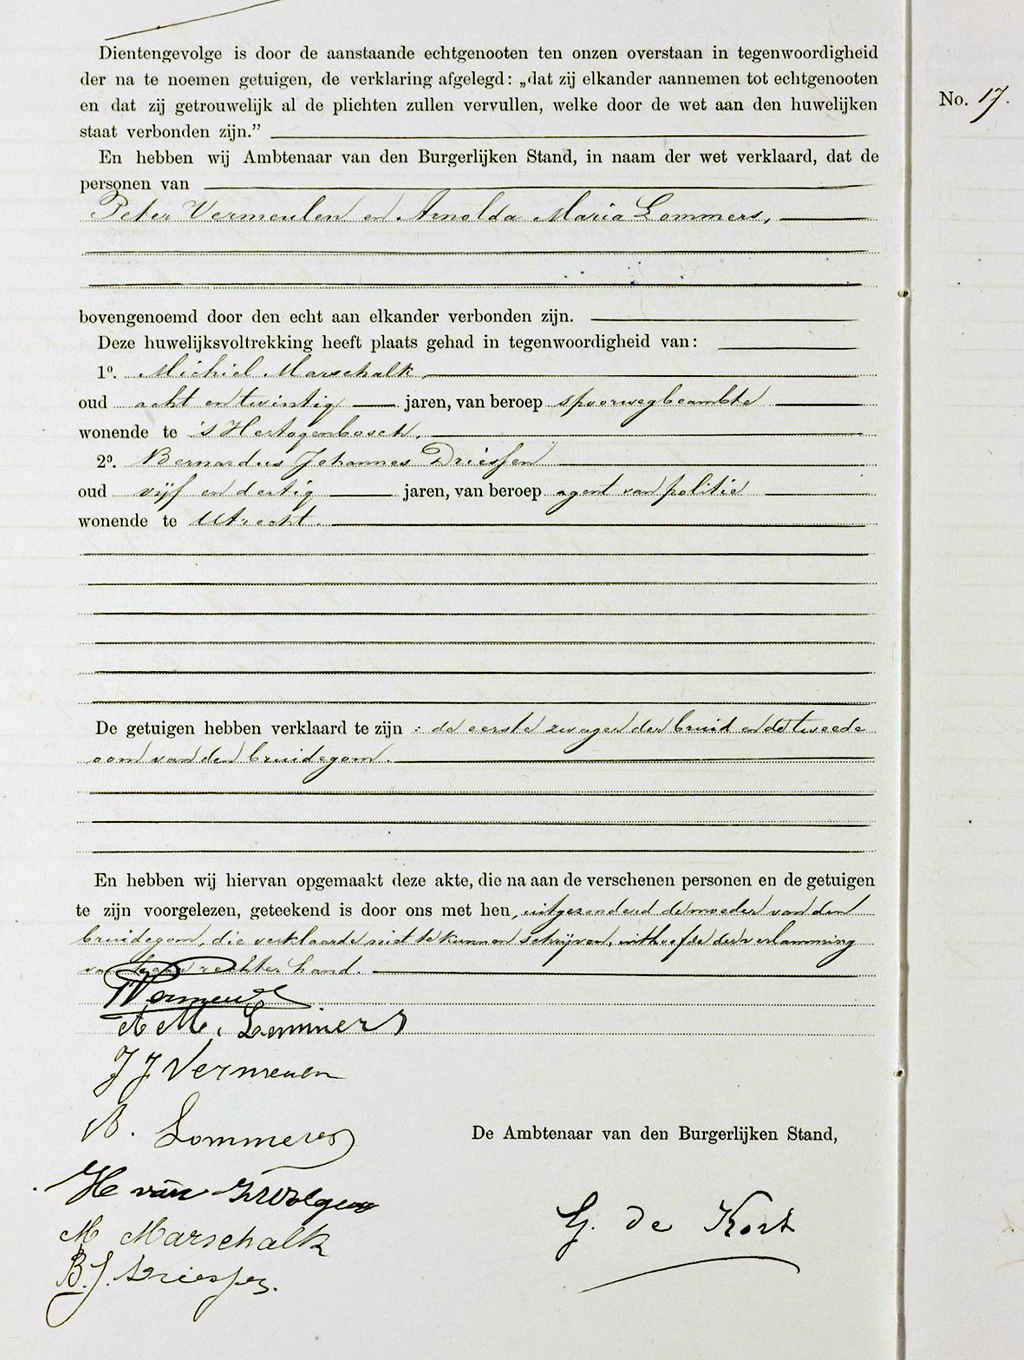 Dientengevolge is door de aanstaande echtgenooten ten onzen overstaan in tegenwoordigheid
der na te noemen getuigen, de verklaring afgelegd: „dat zij elkander aannemen tot echtgenooten
en dat zij getrouwelijk al de plichten zullen vervullen, welke door de wet aan den huwelijken
No. 17.
staat verbonden zijn.”
En hebben wij Ambtenaar van den Burgerlijken Stand, in naam der wet verklaard, dat de
personen van
Peter Vermeulen en Arnolda Maria Lommers,
bovengenoemd door den echt aan elkander verbonden zijn.
Deze huwelijksvoltrekking heeft plaats gehad in tegenwoordigheid van:
1o. Michiel Marschalk
oud acht en twintig jaren, van beroep spoorwegbeambte
wonende te 's Hertogenbosch,
2o. Bernardus Johannes Driessen
oud vijf en dertig jaren, van beroep agent van politie
wonende te Utrecht.
De getuigen hebben verklaard te zijn : de eerste zwager der bruid en de tweede
oom van den bruidegom.
En hebben wij hiervan opgemaakt deze akte, die na aan de verschenen personen en de getuigen
te zijn voorgelezen, geteekend is door ons met hen, uitgezonderd de moeder van den
bruidegom, die verklaarde niet te kunnen schrijven, uithoofde der verlamming
van hare rechter hand.
PVermeulen
A M. Lommers
J J Vermeulen
A. Lommers
De Ambtenaar van den Burgerlijken Stand,
H van
M Marschalk
G. de Kort
B. J. Driessen.